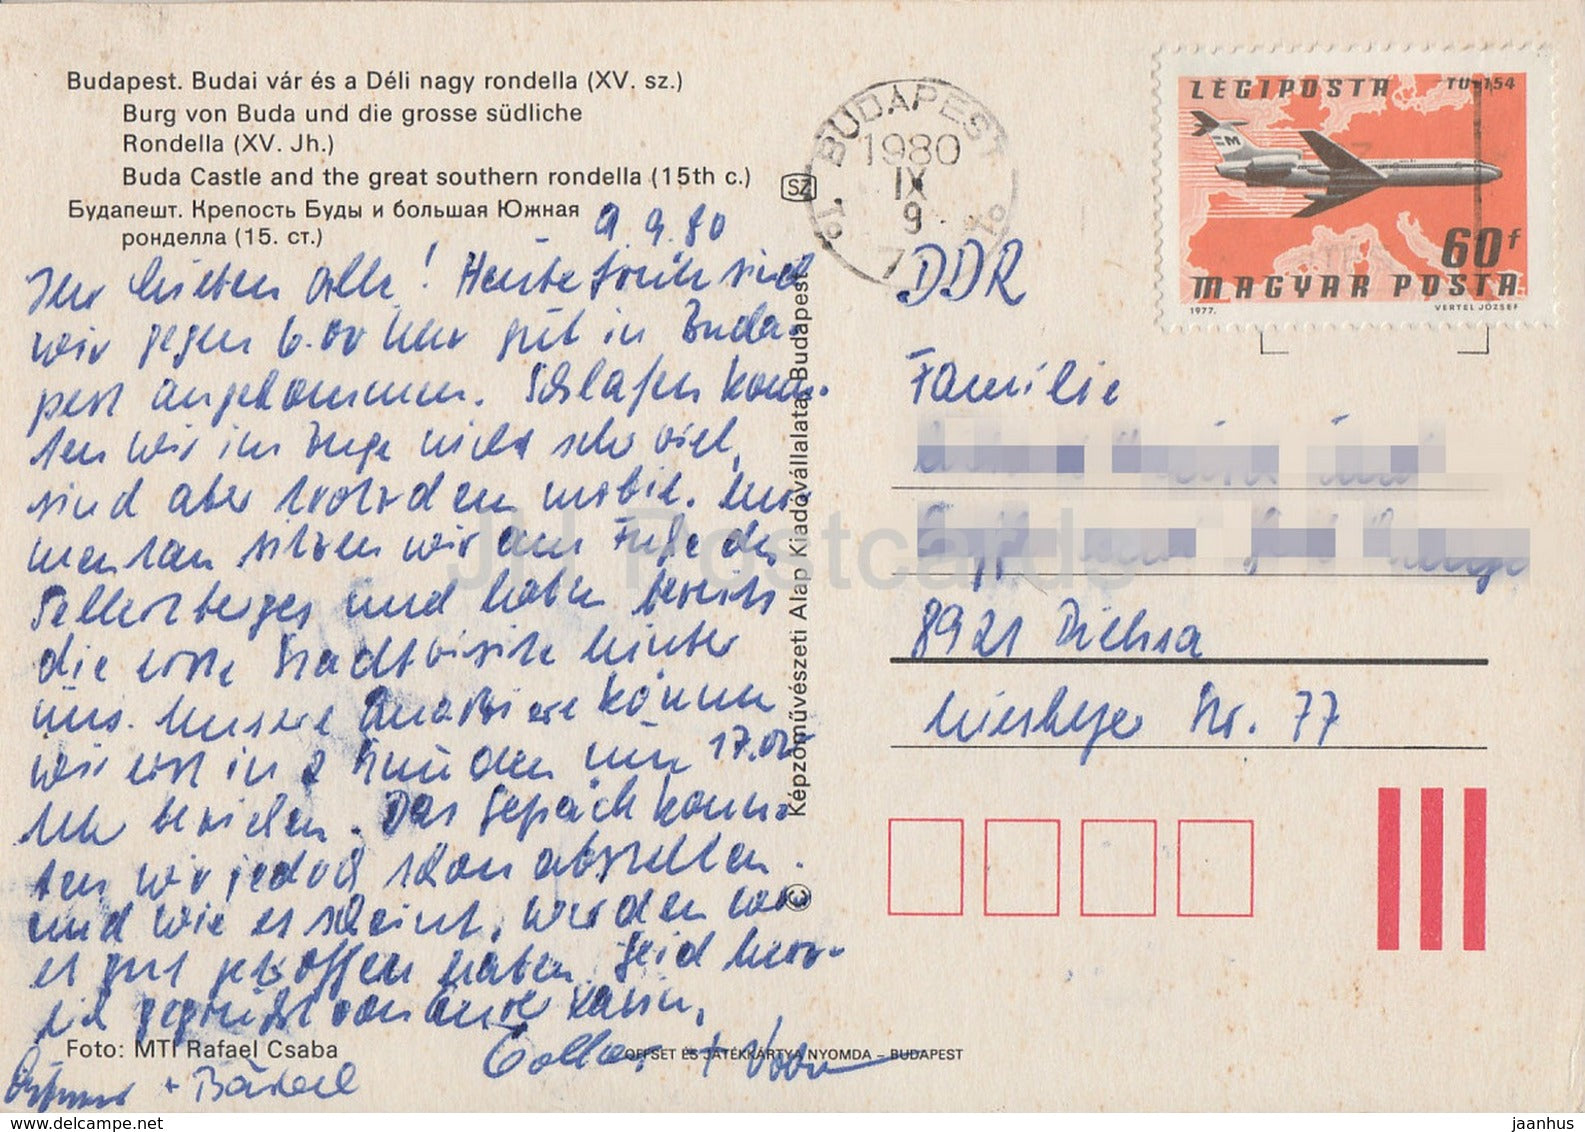 Budapest. Budai vár és a Déli nagy rondella (XV. sz.)
Burg von Buda und die grosse südliche
Rondella (XV. Jh.)
Buda Castle and the great southern rondella (15th c.)
Будапешт. Крепость Буды и большая Южная
ронделла (15. ст.)
9.9.80
Ihr lieben alle! Heute früh sind
wir gegen 6.00 Uhr gut in Buda-
pest angekommen. Schlafen konn-
ten wir im Zuge nicht sehr viel,
sind aber trotzdem mobil. Mo-
mentan sitzen wir am Fuße des
Gellertberges und haben bereits
die erste Stadtvisite hinter
uns. Unsere Quartiere können
wir erst in 2 Stunden um 17.00
Uhr beziehen. Das Gepäck konn-
ten wir jedoch schon abstellen
und wie es scheint, werden wir
es gut getroffen haben. Seid herz-
lich gegrüßt von Eurer Karin,
+ Bärbel
+
Foto: MTI Rafael Csaba
OFFSET ÉS JÁTÉKKÁRTYA NYOMDA – BUDAPEST
© Képzőművészeti Alap Kiadóvállalata, Budapest
SZ
BUDAPEST
1980
IX
9
7
LÉGIPOSTA
TU-154
M
60f
MAGYAR POSTA
1977.
VERTEL JÓZSEF
DDR
Familie
8921 Diehsa
Str. 77
JH Postcards
www.delcampe.net
jaanhus